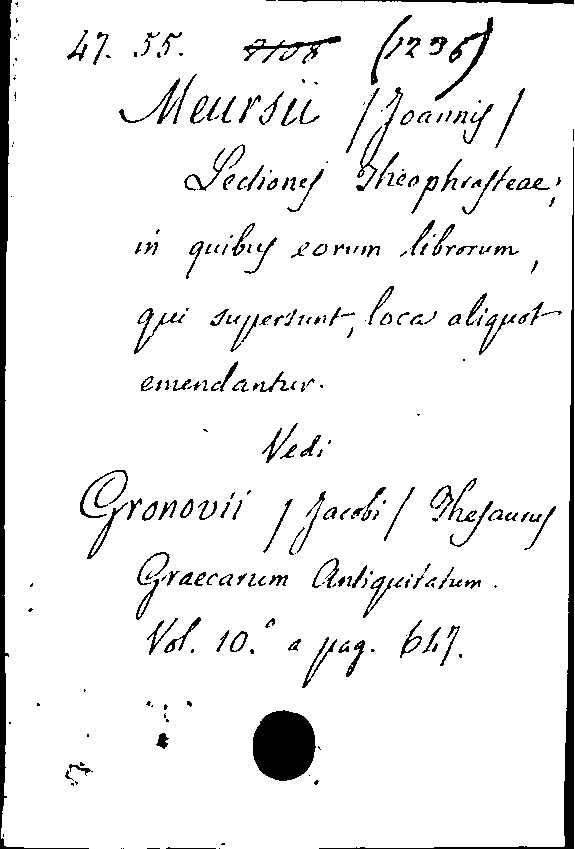 47. 55. 2108 (1236)
Meursii /Joannis/
Lectiones Theophrasteae;
in quibus eorum librorum,
qui supersunt, loca aliquot
emendantur.
Vedi
Gronovii /Jacobi/ Thesaurus
Graecarum Antiquitatum.
Vol. 10.° a pag. 647.